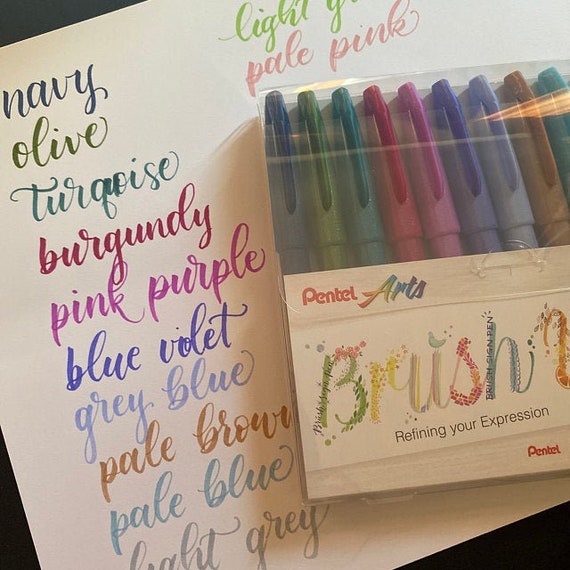 light
pale pink
navy
olive
turqoise
burgundy
pink purple
blue volet
grey blue
pale brown
pale blue
light grey
Pentel Arts
Brush
BRUSH SIGN PEN
Refining your Expression
Pentel